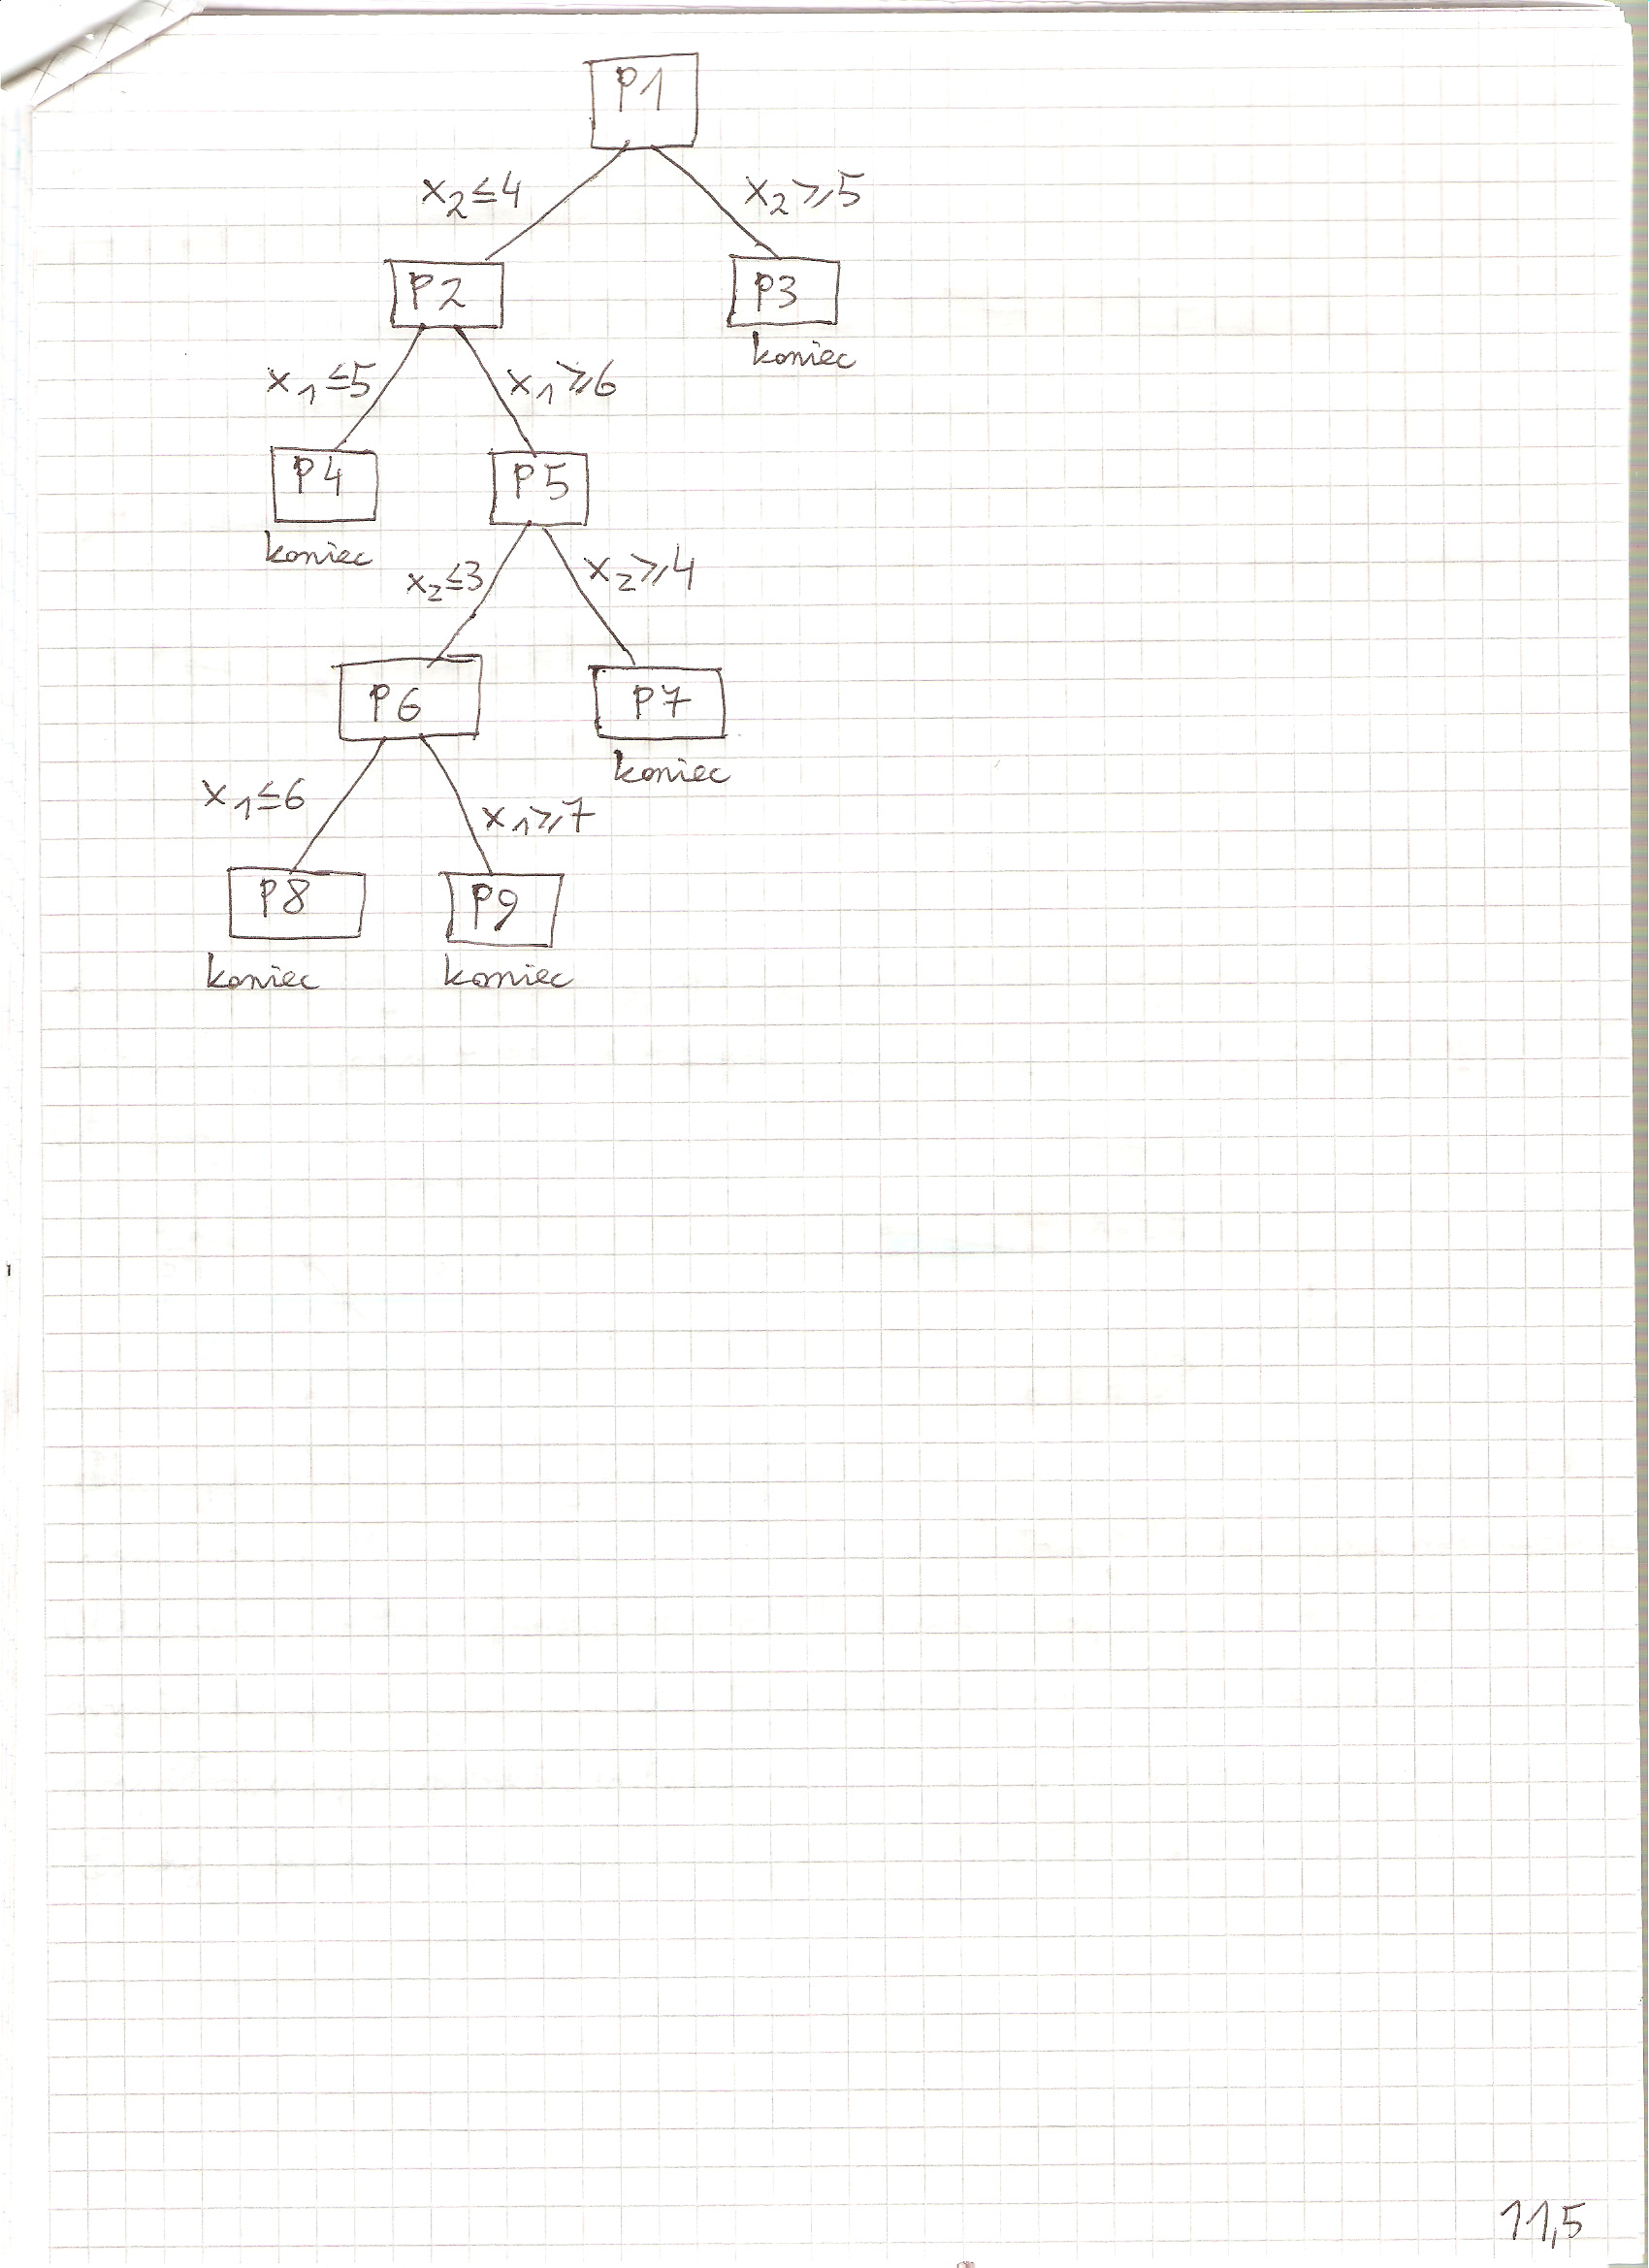 P1
x₂≤4 x₂≥5
P2 P3
koniec
x₁≤5 x₁≥6
P4 P5
koniec
x₂≤3 x₂≥4
P6 P7
koniec
x₁≤6 x₁≥7
P8 P9
koniec koniec
11,5